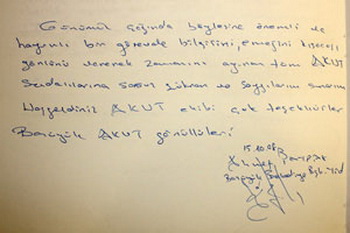 Günümüz çağında böylesine önemli ve
hayırlı bir görevde bilgisini, emeğini kısacası
gönlünü vererek zamanını ayıran tüm AKUT
Sevdalılarına sonsuz şükran ve saygılarımı sunarım
Hoşgeldiniz AKUT ekibi çok teşekkürler
Bozüyük AKUT gönüllüleri!
15.10.
Ahmet
Bozüyük Belediye Bşk.